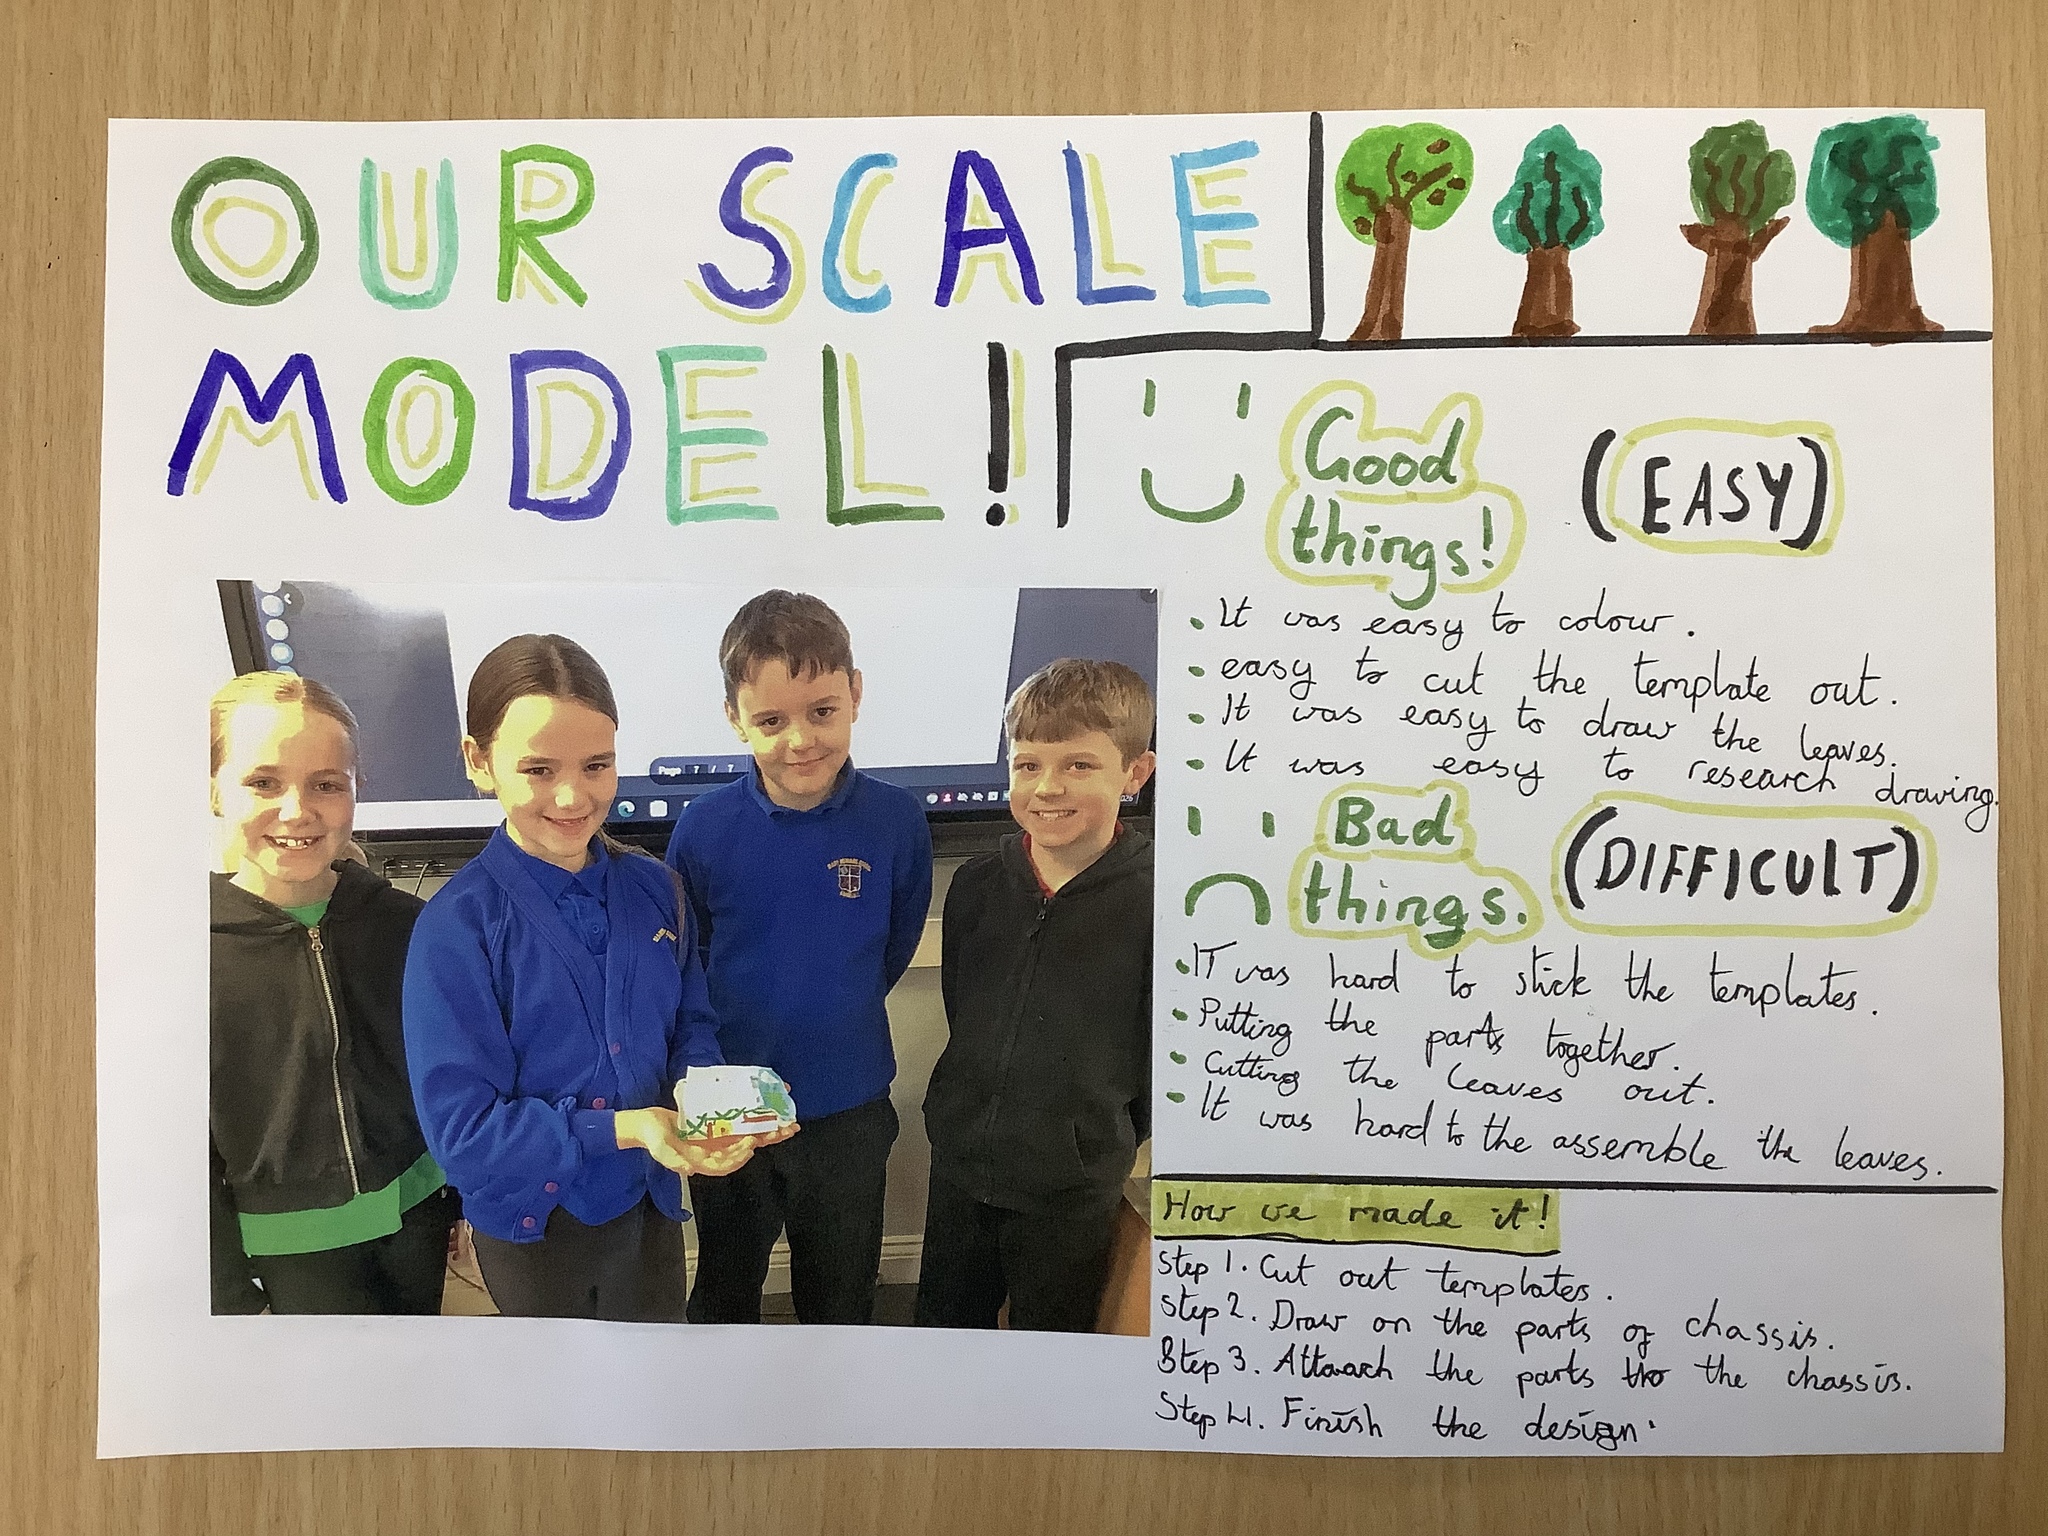 OUR SCALE
MODEL!
Good
things!
(EASY)
• It was easy to colour.
• easy to cut the template out.
• It was easy to draw the leaves.
• It was easy to research drawing.
Bad
things.
(DIFFICULT)
• IT was hard to stick the templates.
• Putting the parts together.
• Cutting the leaves out.
• It was hard to the assemble the leaves.
How we made it!
Step 1. Cut out templates.
Step 2. Draw on the parts of chassis.
Step 3. Attaach the parts to the chassis.
Step 4. Finish the design.
Page 7 / 7